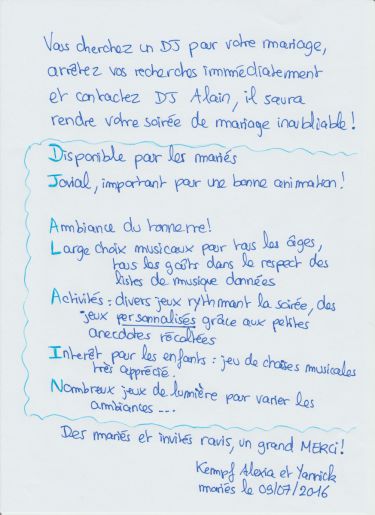 Vous cherchez un DJ pour votre mariage,
arrêtez vos recherches immmédiatement
et contactez DJ Alain, il saura
rendre votre soirée de mariage inoubliable !
Disponible pour les mariés
Jovial, important pour une bonne animation !
Ambiance du tonnerre !
Large choix musicaux pour tous les âges,
tous les goûts dans le respect des
listes de musique données
Activités : divers jeux rythmant la soirée, des
jeux personnalisés grâce aux petites
anecdotes récoltées
Interêt pour les enfants : jeu de chaises musicales
très apprécié.
Nombreux jeux de lumière pour varier les
ambiances ...
Des mariés et invités ravis, un grand MERCI !
Kempf Alexia et Yannick
mariés le 09/07/2016